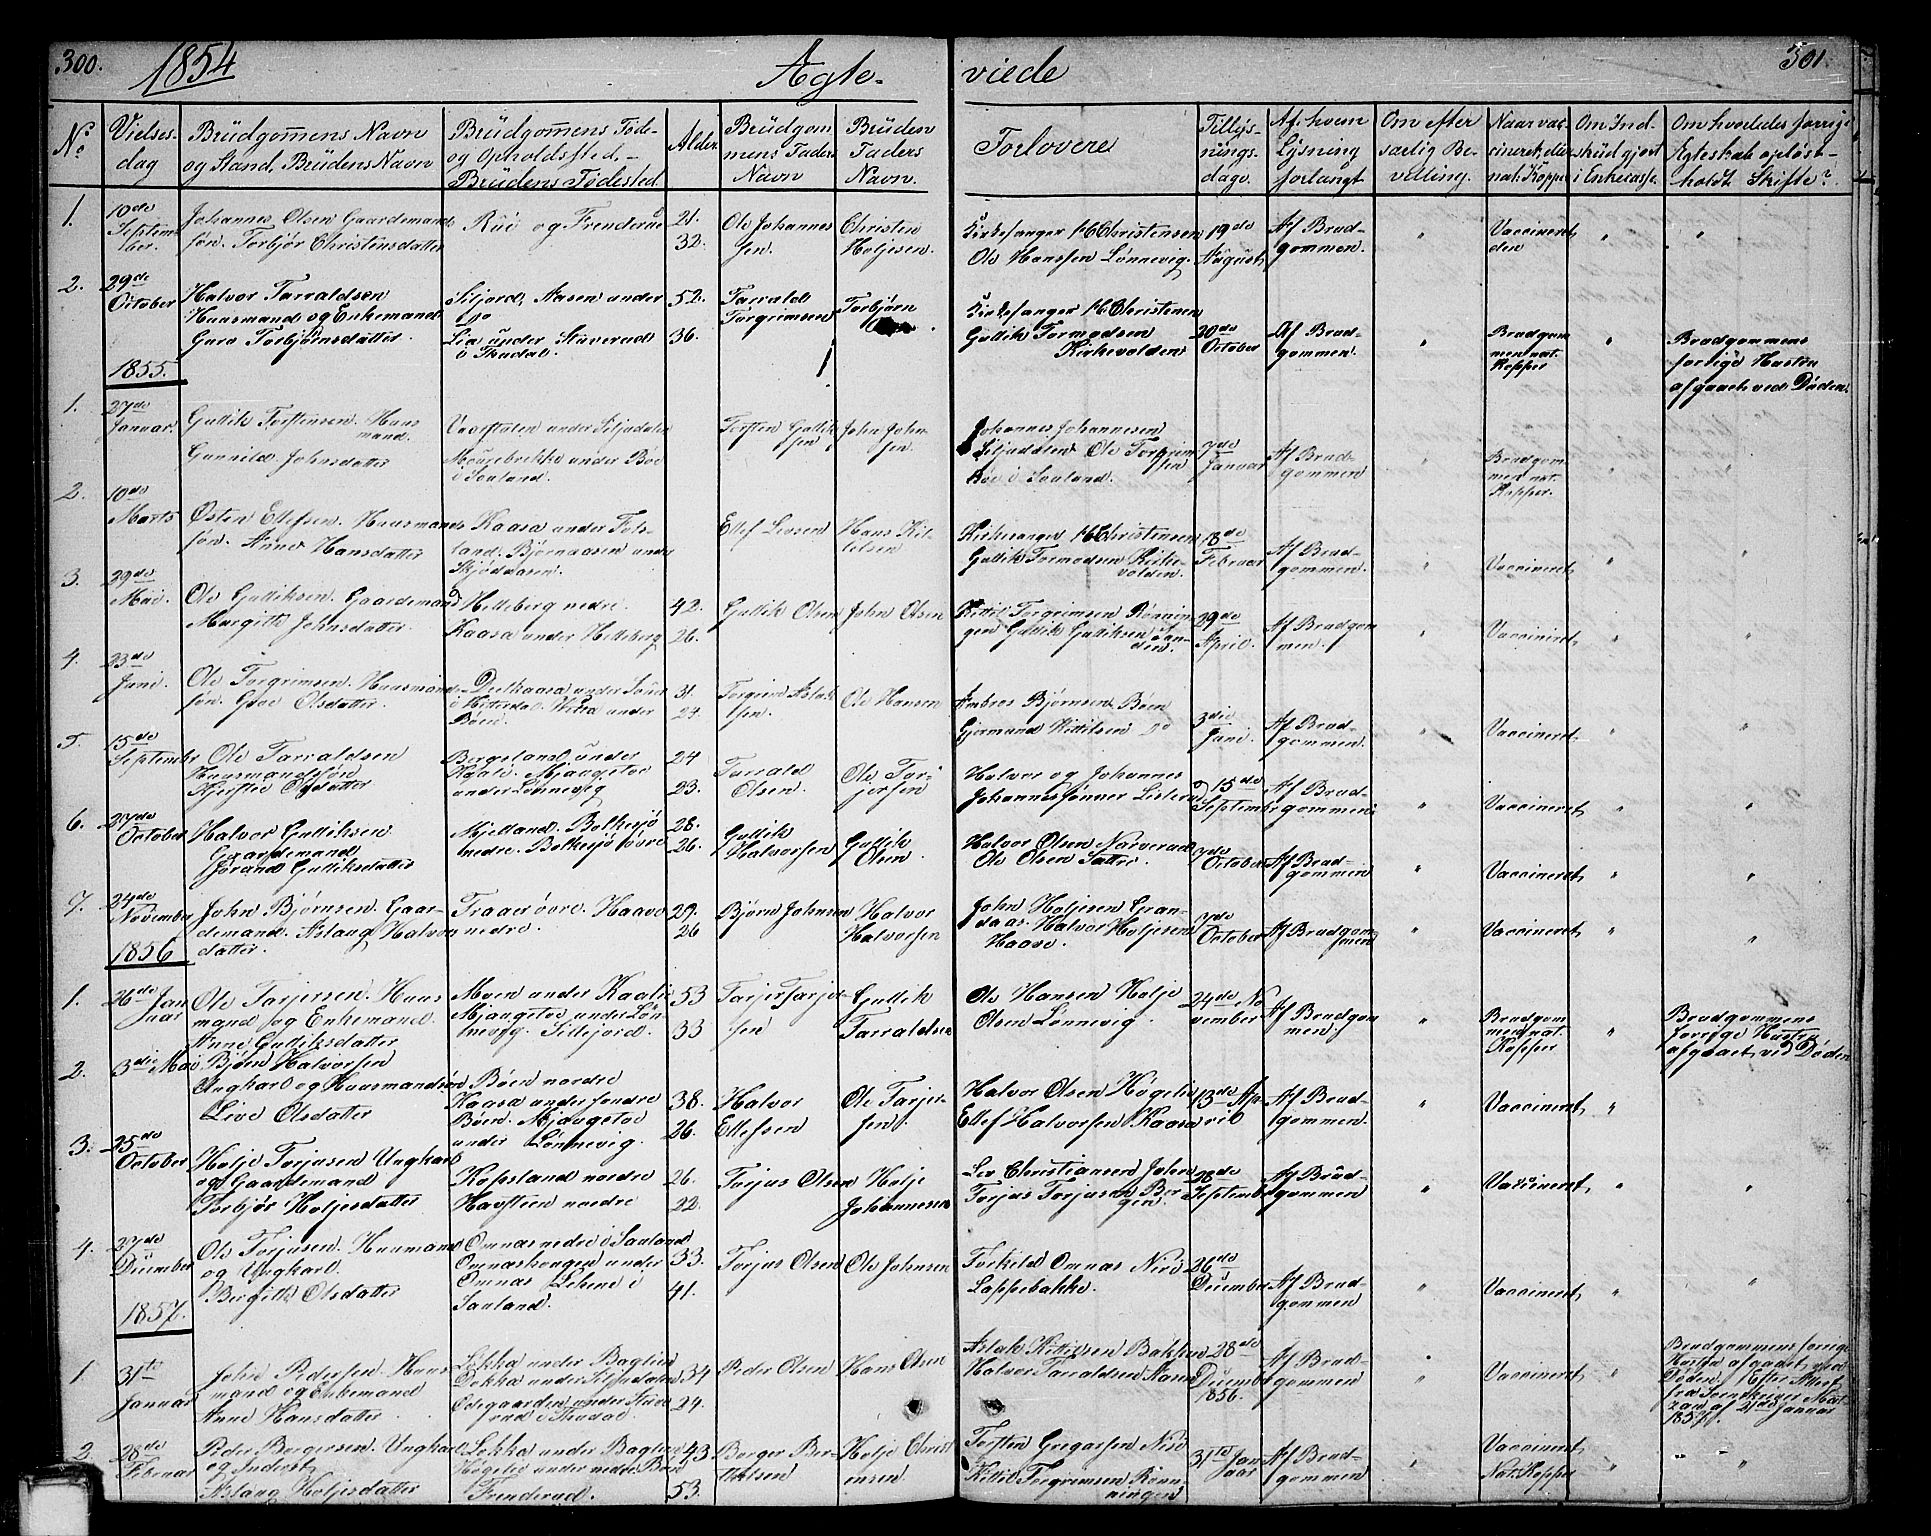 300.
1854
Ægte-
viede
301.
No.
Vielses-
dag
Brüdgomens Navn
og Stand, Brüdens Navn
Brüdgomens Föde-
og Opholdssted, -
Brüdens Födested
Alder
Brüdgom
mens Faders
Navn
Brüden
Faders
Navn.
Forlovere
Tillys-
nings-
dage.
Af hvem
Lysning
forlangt
Om efter
særlig Be-
villing.
Naar vac-
cineret, eller
nat. Kopper
Om Ind-
skud gjort
i Enkecasse.
Om hvorledes forrige
Ægteskab opløst -
holdt Skifte?
1.
10de
Septem-
ber.
Johannes Olsen Gaardemands
søn. Torbjør Christensdatter
Rue og Frenderud
21.
32.
Ole Johannes
sen.
Christen
Holjesen.
Kirkesanger H Christensen
Ole Hanssen Lønnevig.
19de
August
Af Brud-
gommen.
"
Vaccineret
den
"
"
2.
29de
October
Halvor Tarraldsen
Huusmand og Enkemand
Guro Torbjørnsdatter.
Siljord, Aasen under
Lia under Staverud
i Tuddal.
52.
36.
Tarrald
Torgrimsen
Torbjørn
Kirkesanger H Christensen
Gullik Tormodsen
Kirkevolden
20de
October
Af Brud-
gommen.
"
Brudgom
men nat.
Kopper
"
Brudgommens
forrige Hustru
afgaaet ved Døden.
1855.
1.
27de
Januar.
Gullik Torstensen. Huus
mand.
Gunnild Johnsdatter
under Siljudalen
Mourebrekke under Bøe
i Sauland.
Torsten Gullik
sen
John John-
sen.
Johannes Johannesen
Siljudalen Ole Torgrim
sen
Bøe i Sauland.
7de
Januar
Af Brud-
gommen
"
Brudgom-
men nat.
Kopper.
"
"
2.
10de
Marts
Østen Ellefsen. Huusmands
søn. Anne Hansdatter
Kaasa under Fols-
land. Bjørnaasen under
Skjødaasen.
Ellef Leosen
Hans Kit-
telsen
Kirkesanger H Christensen
Gullik Tormodsen Kirke-
volden.
18de
Februar
Af Brud-
gommen.
"
Vaccineret
"
"
3.
29de
Mai.
Ole Gulliksen. Gaardemand
Margith Johnsdatter.
Helleberg nedre.
Kaasa under Helleberg
42.
26.
Gullik Olsen
John Olsen
Kittil Torgrimsen Rønnin-
gen Gullik Gulliksen San-
den.
29de
April.
Af Brudgom
men.
"
Vaccineret
"
"
4.
23de
Juni.
Ole Torgrimsen. Huusmands
søn. Groe Olsdatter.
Deelkaasa under
i Hitterdal. under
Bøen.
31.
24.
Torgrim Aslak
sen.
Ole Hansen
Ambros Bjørnsen Bøen
Gjermund Kittilsen Do
3die
Juni.
Af Brud-
gommen.
"
Vaccineret.
"
"
5.
15de
Septembr
Ole Tarraldsen
Huusmandssøn
Kjersti Olsdatter
Bergeland under
Kaali. Mjaugetoe
under Lønnevig
24
23.
Tarrald
Olsen.
Ole Tar-
jersen
Halvor og Johannes
Johannessønner Listerud
15de
Septembr
Af Brud-
gommen.
"
Vaccineret
"
"
6.
27de
October
Halvor Gulliksen
Gaardemand
Jørand Gulliksdatter
Mjelland. Bolkesjø
nedre. Bolkesjø övre
28.
26.
Gullik
Halvorsen
Gullik
Olsen.
Halvor Olsen Narverud
Ole Olsen Satre.
7de
October
Af Brud-
gommen
"
Vaccineret
"
"
7.
24de
November
John Bjørnsen. Gaar-
demand. Aslaug Halvors
datter.
Traaer övre. Haave
nedre.
29.
26
Bjørn Johnsen
Halvor
Halvorsen
John Holjesen Gran-
daas. Halvor Holjesen
Haave.
7de
October
Af Brudgom
men
"
Vaccineret
"
"
1856
1.
26de Jan
uar
Ole Tarjersen. Huus
mand og Enkemand.
Anne Gulliksdatter
Moen under Kaali
Mjaugetoe under Løn-
nevig. Sillejord.
53
33
Tarjer Tarjer-
sen
Gullik
Tarraldsen
Ole Hansen Holje
Olsen Lønnevig.
24de No
vember
Af Brudgom
men.
"
Brudgom
men nat.
Kopper
"
Brudgommens
forrige Hustru
afgaaet ved Døden
2.
3die Mai
Bjøen Halvorsen
Ungkarl og Huusmandssøn
Live Olsdatter
Bøen nordre
Kaasa under søndre
Bøen. Mjaugetoe
under Lønnevig.
38.
26.
Halvor
Ellefsen
Ole Tarjer-
sen.
Halvor Olsen Høgelie
Ellef Halvorsen Kaasa
13de Ap-
ril
Af Brud-
gommen.
"
Vaccineret
"
3.
25de
October
Holje Torjusen Ungkarl
og Gaardemand
Torbjør Holjesdatter
Kopsland nordre
Havsteen nordre
26.
22.
Torjus Olsen
Holje
Johannesen
Lev Christiansen John
Torjus Torjusen Ber
gen.
28de
Septembr
Af Brüd-
gommen
"
Vaccineret
"
"
4.
27de
December
Ole Torjusen. Huusmand
og Ungkarl.
Bergith Olsdatter
Omnas nedre i Sauland
Omnashaugen under
Omnas i
Sauland.
33.
41.
Torjus Olsen
Ole Johnsen
Torkild Omnas Niri
Loppebakke.
26de
December
Af Brud-
gommen
"
Vaccineret
"
"
1857.
1
31te
Januar
John Pedersen. Huus
mand og Enkemand
Anne Hansdatter
Løkka under Baglien
Løkka under Siljudalen
Ødegaarden under Stave
rud i Tuddal.
34
24.
Peder Olsen
Hans Olsen
Aslak Kittilsen Bakken
Halvor Tarraldsen
28de
December
1856.
Af Brud-
gommen
"
Vaccineret
"
Brudgommens forrige
Hustru afgaaet ved
Døden. Efter Attest
fra
af 21de Januar
1857.
2
28de
Februar
Peder Bergersen. Ungkarl
og Inderst
Aslaug Holjesdatter
Løkka under Baglien
Høgelie under nedre Bøen
Frenderud.
43
53.
Berger Ber-
thelsen
Holje Christ
ensen
Torsten Gregarsen Niri
Kittil Torgrimsen Røn-
ningen
31te Jan
uar
Af Brud-
gommen
"
Vaccineret
Nat. Kopper
"
"